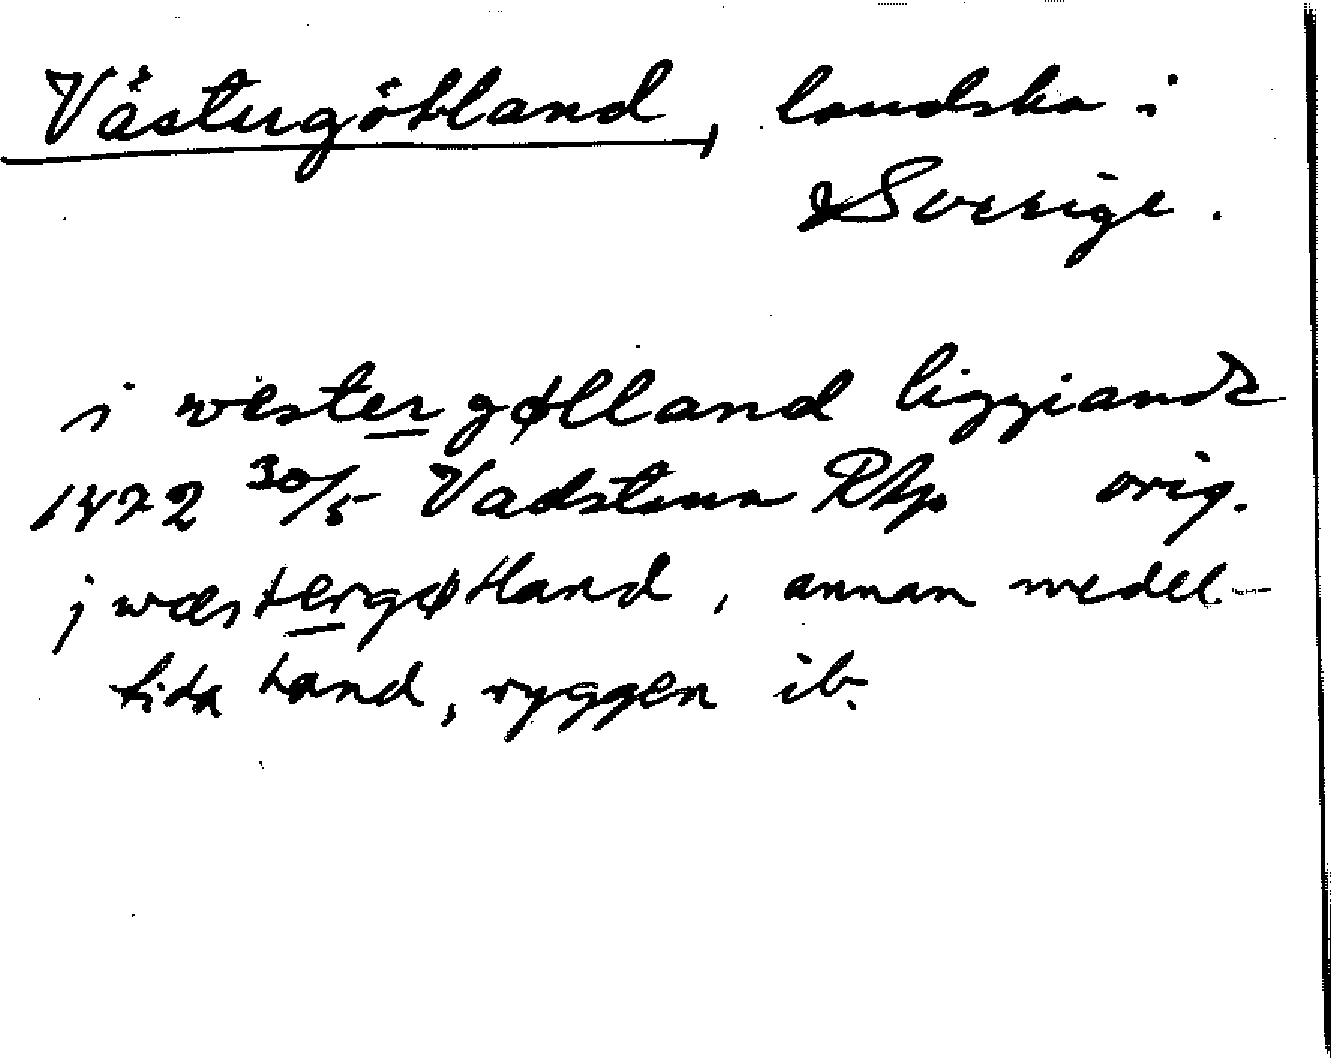 Västergötland, landska i
Sverige.
i westergøtland liggiande
1472 30/5 Vadstena Rhp orig.
j wæstergøtland, annan medel-
tida hand, ryggen ib.